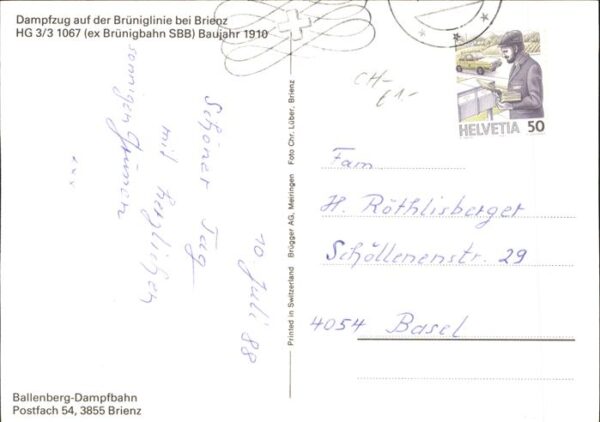 Dampfzug auf der Brüniglinie bei Brienz
HG 3/3 1067 (ex Brünigbahn SBB) Baujahr 1910
10 Juli 88
Schöner Tag
mit herzlichen
sonnigen Grüssen
Ballenberg-Dampfbahn
Postfach 54, 3855 Brienz
Printed in Switzerland Brügger AG, Meiringen Foto Chr. Lüber, Brienz
CH-
£1.-
HELVETIA 50
Fam
H. Röthlisberger
Schöllenenstr. 29
4054 Basel